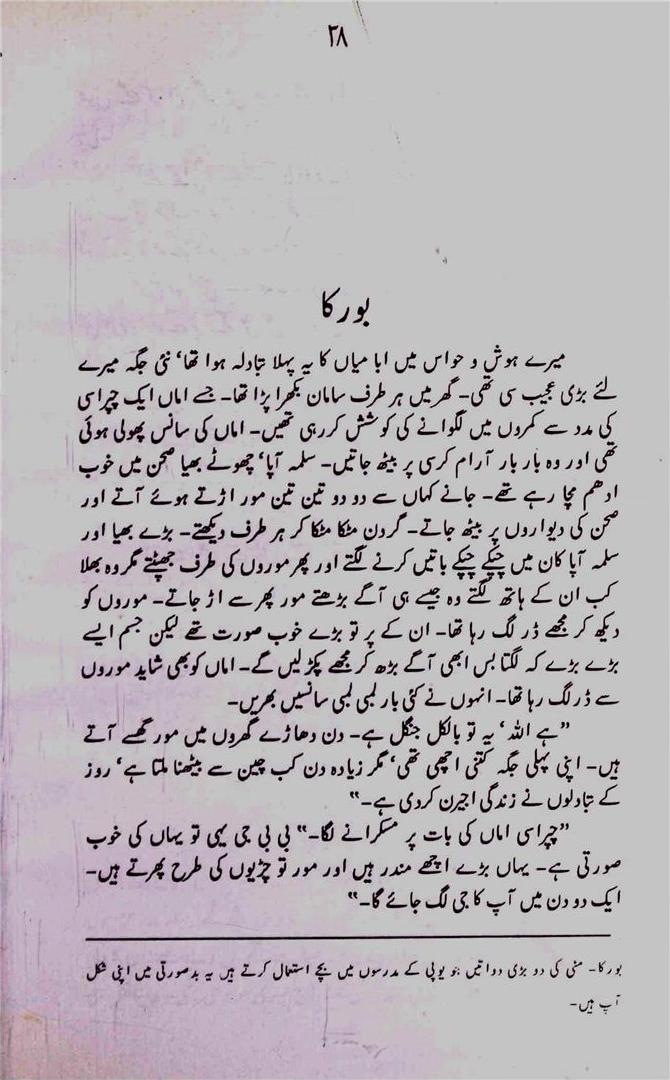 ۳۸
بورکا
میرے ہوش و حواس میں ابا میاں کا یہ پہلا تبادلہ ہوا تھا، نئی جگہ میرے
لئے بڑی عجیب سی تھی۔ گھر میں ہر طرف سامان بکھرا پڑا تھا۔ جسے اماں ایک چپراسی
کی مدد سے کمروں میں لگوانے کی کوشش کر رہی تھیں۔ اماں کی سانس پھولی ہوئی
تھی اور وہ بار بار آرام کرسی پر بیٹھ جاتیں۔ سلمہ آپا، چھوٹے بھیا صحن میں خوب
ادھم مچا رہے تھے۔ جانے کہاں سے دو دو تین تین مور اڑتے ہوئے آتے اور
صحن کی دیواروں پر بیٹھ جاتے۔ گردن مٹکا مٹکا کر ہر طرف دیکھتے۔ بڑے بھیا اور
سلمہ آپا کان میں چپکے چپکے باتیں کرنے لگتے اور پھر موروں کی طرف جھپٹتے مگر وہ بھلا
کب ان کے ہاتھ لگتے وہ جیسے ہی آگے بڑھتے مور پھر سے اڑ جاتے۔ موروں کو
دیکھ کر مجھے ڈر لگ رہا تھا۔ ان کے پر تو بڑے خوب صورت تھے لیکن جسم ایسے
بڑے بڑے کہ لگتا بس ابھی آگے بڑھ کر مجھے پکڑ لیں گے۔ اماں کو بھی شاید موروں
سے ڈر لگ رہا تھا۔ انہوں نے کئی بار لمبی لمبی سانسیں بھریں۔
”ہے اللہ، یہ تو بالکل جنگل ہے۔ دن دھاڑے گھروں میں مور گھسے آتے
ہیں۔ اپنی پہلی جگہ کتنی اچھی تھی، مگر زیادہ دن کب چین سے بیٹھنا ملتا ہے، روز
کے تبادلوں نے زندگی اجیرن کر دی ہے۔“
”چپراسی اماں کی بات پر مسکرانے لگا۔“ بی بی جی یہی تو یہاں کی خوب
صورتی ہے۔ یہاں بڑے اچھے مندر ہیں اور مور تو چڑیوں کی طرح پھرتے ہیں۔
ایک دو دن میں آپ کا جی لگ جائے گا۔“
بورکا۔ مٹی کی دو بڑی دواتیں جو یوپی کے مدرسوں میں بچے استعمال کرتے ہیں یہ بدصورتی میں اپنی شکل
آپ ہیں۔